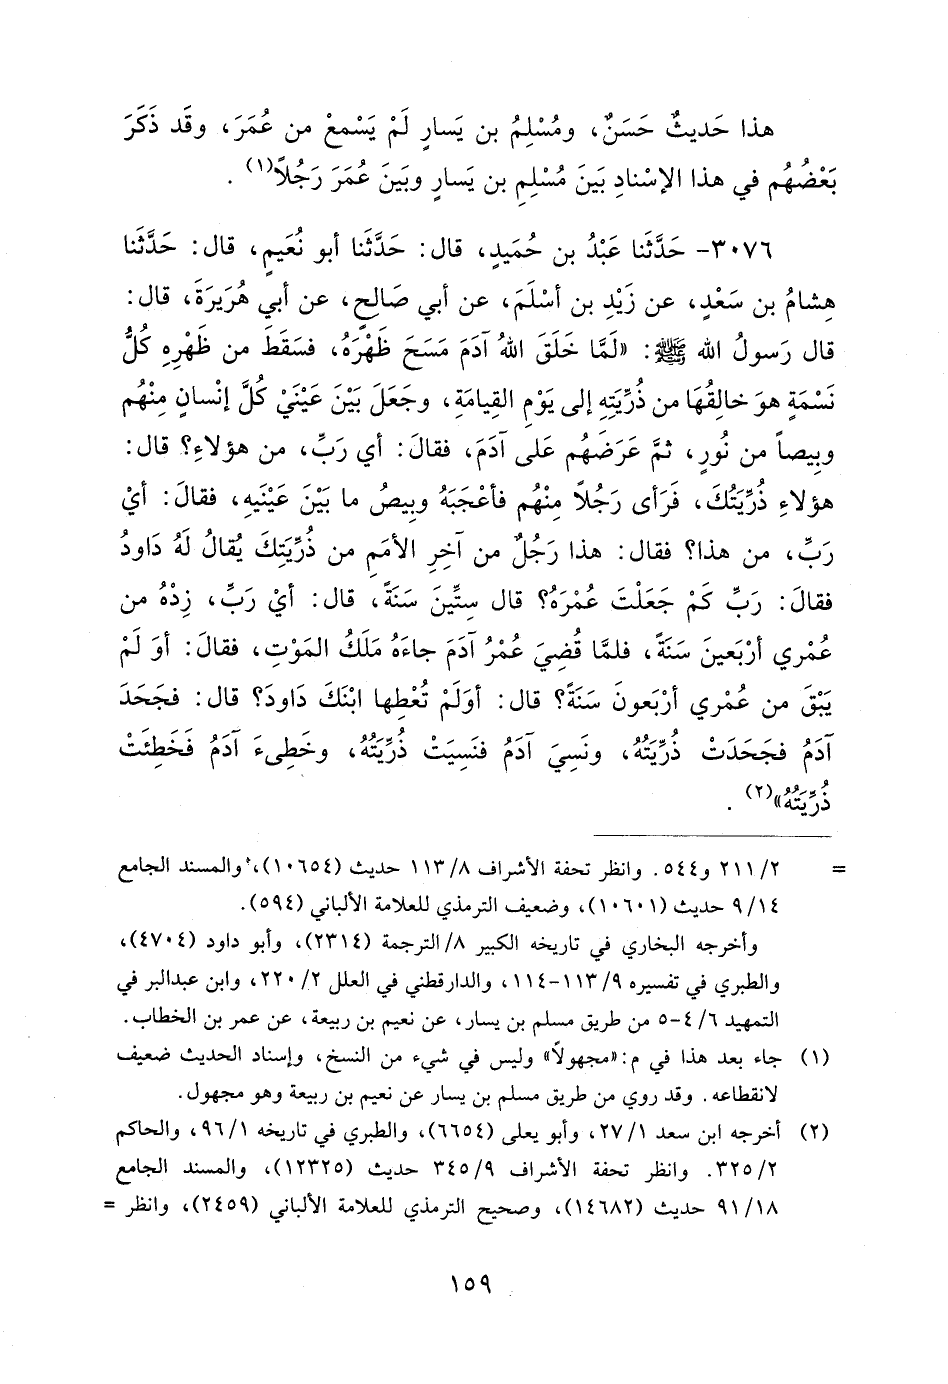 هذا حَديثٌ حَسَنٌ، ومُسْلِمُ بن يَسارٍ لَمْ يَسْمعْ من عُمَرَ، وقَد ذَكَرَ
بَعْضُهُم في هذا الإسْنادِ بَينَ مُسْلِمِ بن يَسارٍ وبَينَ عُمَرَ رَجُلاً(١) .
٣٠٧٦- حَدَّثَنا عَبْدُ بن حُمَيدٍ، قال: حَدَّثَنا أبو نُعَيمٍ، قال: حَدَّثَنا
هِشامُ بن سَعْدٍ، عن زَيْدِ بن أسْلَمَ، عن أبي صَالحٍ، عن أبي هُرَيرَةَ، قال:
قال رَسولُ الله ﷺ: «لَمَّا خَلَقَ اللهُ آدَمَ مَسَحَ ظَهْرَهُ، فسَقَطَ من ظَهْرِهِ كُلُّ
نَسْمَةٍ هوَ خالِقُهَا من ذُرِّيَتِهِ إلى يَوْمِ القِيامَةِ، وجَعَلَ بَيْنَ عَيْنَيْ كُلَّ إنْسانٍ مِنْهُم
وبِيصاً من نُورٍ، ثمَّ عَرَضَهُم عَلى آدَمَ، فقالَ: أي رَبِّ، من هؤلاءِ؟ قال:
هؤلاءِ ذُرِّيَتُكَ، فَرَأى رَجُلاً مِنْهُم فأعْجَبَهُ وبِيصُ ما بَيْنَ عَيْنَيهِ، فقالَ: أيْ
رَبِّ، من هذا؟ فقال: هذا رَجُلٌ من آخِرِ الأمَمِ من ذُرِّيَتِكَ يُقالُ لَهُ دَاودُ
فقالَ: رَبِّ كَمْ جَعَلْتَ عُمْرَهُ؟ قال سِتِّينَ سَنَةً، قال: أيْ رَبِّ، زِدْهُ من
عُمْري أرْبَعينَ سَنَةً، فلمَّا قُضِيَ عُمْرُ آدَمَ جاءَهُ مَلَكُ المَوْتِ، فقالَ: أوَ لَمْ
يَبْقَ من عُمْري أرْبَعونَ سَنَةً؟ قال: أوَلَمْ تُعْطِها ابْنَكَ دَاودَ؟ قال: فجَحَدَ
آدَمُ فجَحَدَتْ ذُرِّيَتُهُ، ونَسِيَ آدَمُ فنَسِيَتْ ذُرِّيَتُهُ، وخَطِىءَ آدَمُ فَخَطِئَتْ
ذُرِّيَتُهُ»(٢) .
= ٢/ ٢١١ و٥٤٤. وانظر تحفة الأشراف ٨/ ١١٣ حديث (١٠٦٥٤)، والمسند الجامع
١٤/ ٩ حديث (١٠٦٠١)، وضعيف الترمذي للعلامة الألباني (٥٩٤).
وأخرجه البخاري في تاريخه الكبير ٨/ الترجمة (٢٣١٤)، وأبو داود (٤٧٠٤)،
والطبري في تفسيره ٩/ ١١٣-١١٤، والدارقطني في العلل ٢/ ٢٢٠، وابن عبدالبر في
التمهيد ٦/ ٤-٥ من طريق مسلم بن يسار، عن نعيم بن ربيعة، عن عمر بن الخطاب.
(١) جاء بعد هذا في م: «مجهولاً» وليس في شيء من النسخ، وإسناد الحديث ضعيف
لانقطاعه. وقد روي من طريق مسلم بن يسار عن نعيم بن ربيعة وهو مجهول.
(٢) أخرجه ابن سعد ١/ ٢٧، وأبو يعلى (٦٦٥٤)، والطبري في تاريخه ١/ ٩٦، والحاكم
٢/ ٣٢٥. وانظر تحفة الأشراف ٩/ ٣٤٥ حديث (١٢٣٢٥)، والمسند الجامع
١٨/ ٩١ حديث (١٤٦٨٢)، وصحيح الترمذي للعلامة الألباني (٢٤٥٩)، وانظر =
١٥٩